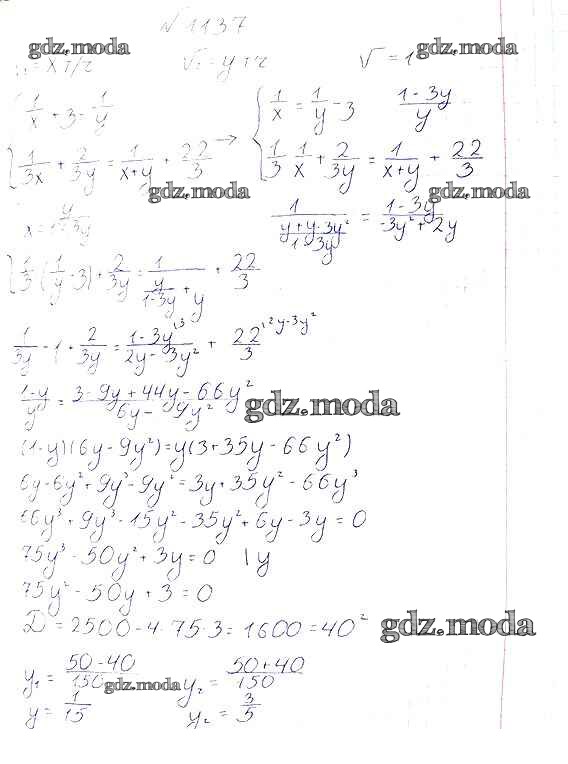 №1137
gdz.moda gdz.moda
= x т/ч v₂ = y т/ч v = 1
{ 1/x + 3 = 1/y { 1/x = 1/y - 3 (1-3y)/y
{ 1/3x + 2/3y = 1/(x+y) + 22/3 → { 1/3 · 1/x + 2/3y = 1/(x+y) + 22/3
gdz.moda gdz.moda
x = y/(1-3y) 1/((y+y-3y²)/(1-3y)) = (1-3y)/(-3y²+2y)
{ 1/3 (1/y - 3) + 2/3y = 1/(y/(1-3y) + y) + 22/3
1/3y - 1 + 2/3y = (1-3y)/(2y-3y²) + 22/3
(1-y)/y = (3-9y+44y-66y²)/(6y-9y²)
gdz.moda
(1-y)(6y-9y²)=y(3+35y-66y²)
6y-6y²+9y³-9y²=3y+35y²-66y³
66y³+9y³-15y²-35y²+6y-3y=0
75y³-50y²+3y=0 |y
75y²-50y+3=0
D=2500-4·75·3=1600=40²
gdz.moda
y₁ = (50-40)/150 y₂ = (50+40)/150
gdz.moda
y = 1/15 y₂ = 3/5